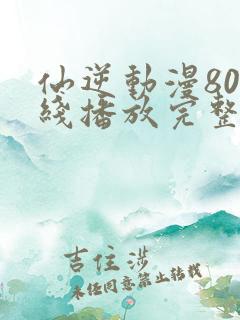 仙逆動漫80
綫播放完整
吉住涉
未任同意禁止轉載